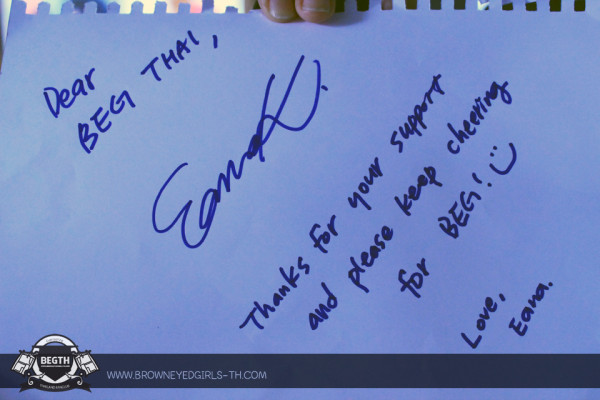 Dear
BEG THAI,
Eana K.
Thanks for your support
and please keep cheering
for BEG! :)
Love,
Eana.
BEGTH
WWW.BROWNEYEDGIRLS-TH.COM